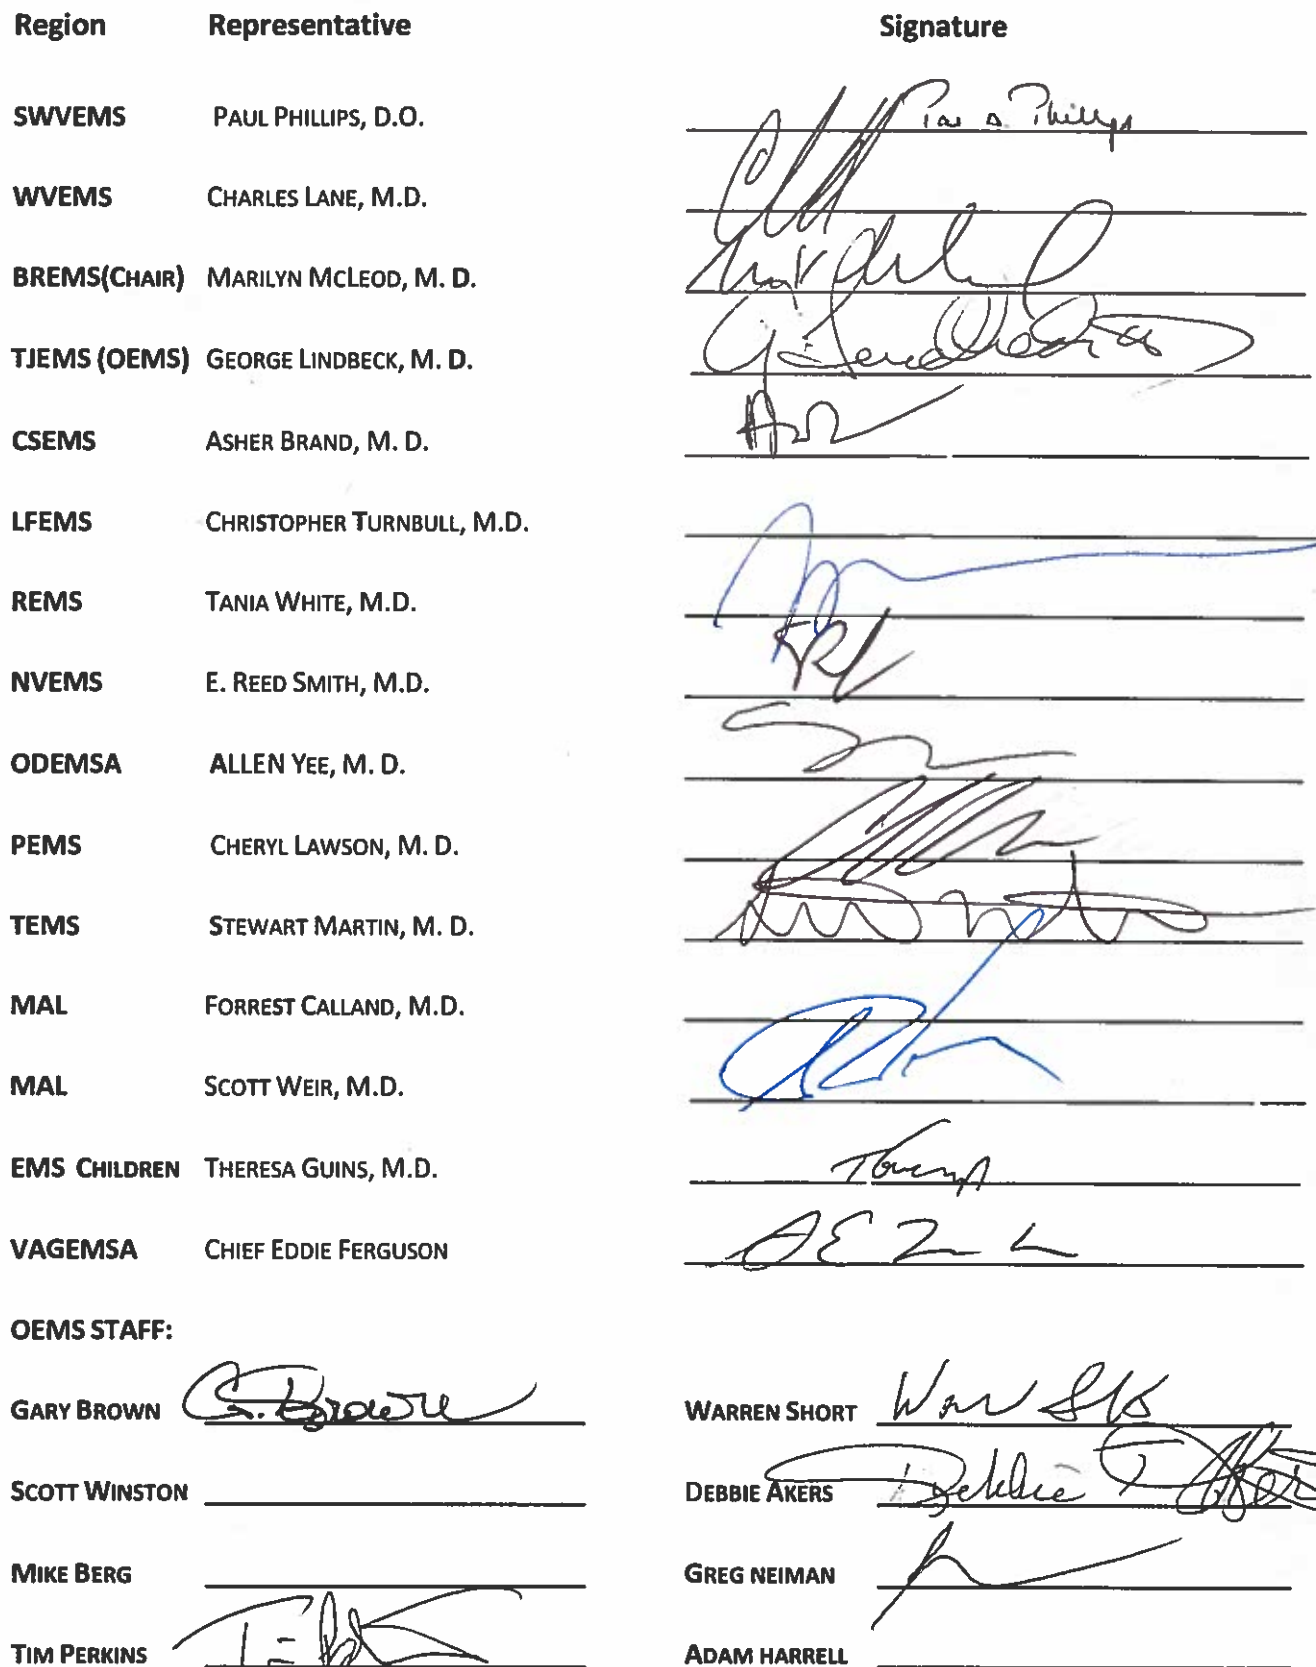 Region Representative Signature
SWVEMS PAUL PHILLIPS, D.O. Phillips
WVEMS CHARLES LANE, M.D.
BREMS(CHAIR) MARILYN MCLEOD, M. D.
TJEMS (OEMS) GEORGE LINDBECK, M. D.
CSEMS ASHER BRAND, M. D.
LFEMS CHRISTOPHER TURNBULL, M.D.
REMS TANIA WHITE, M.D.
NVEMS E. REED SMITH, M.D.
ODEMSA ALLEN YEE, M. D.
PEMS CHERYL LAWSON, M. D.
TEMS STEWART MARTIN, M. D.
MAL FORREST CALLAND, M.D.
MAL SCOTT WEIR, M.D.
EMS CHILDREN THERESA GUINS, M.D.
VAGEMSA CHIEF EDDIE FERGUSON
OEMS STAFF:
GARY BROWN G. Brown WARREN SHORT
SCOTT WINSTON DEBBIE AKERS Debbie T Akers
MIKE BERG GREG NEIMAN
TIM PERKINS ADAM HARRELL